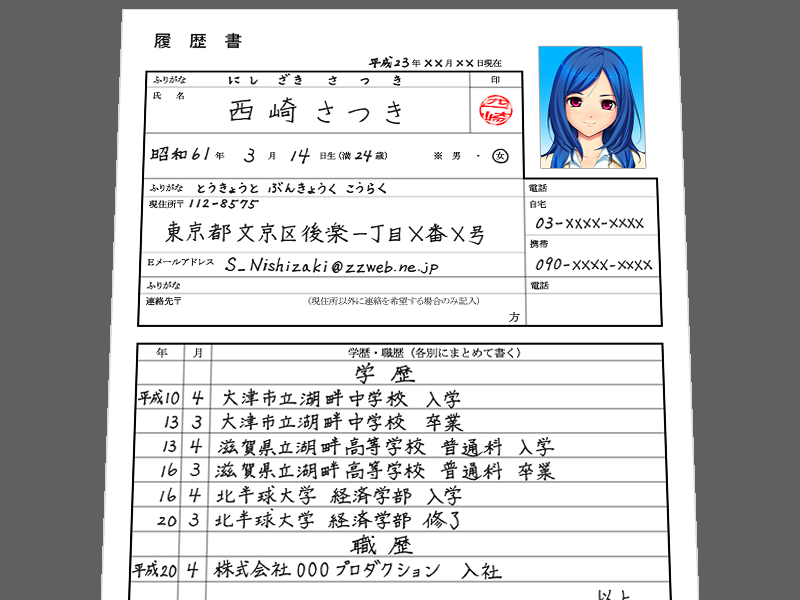 履歴書
平成23年××月××日現在
ふりがな にしざき さつき 印
氏名 西崎さつき 西崎
昭和61年 3月 14日生(満24歳) ※ 男・女
ふりがな とうきょうと ぶんきょうく こうらく 電話
現住所〒112-8575 自宅
東京都文京区後楽一丁目×番×号 03-××××-××××
携帯
Eメールアドレス S_Nishizaki@zzweb.ne.jp 090-××××-××××
ふりがな 電話
連絡先〒 (現住所以外に連絡を希望する場合のみ記入)
方
年 月 学歴・職歴(各別にまとめて書く)
学歴
平成10 4 大津市立湖畔中学校 入学
13 3 大津市立湖畔中学校 卒業
13 4 滋賀県立湖畔高等学校 普通科 入学
16 3 滋賀県立湖畔高等学校 普通科 卒業
16 4 北半球大学 経済学部 入学
20 3 北半球大学 経済学部 修了
職歴
平成20 4 株式会社000プロダクション 入社
以上